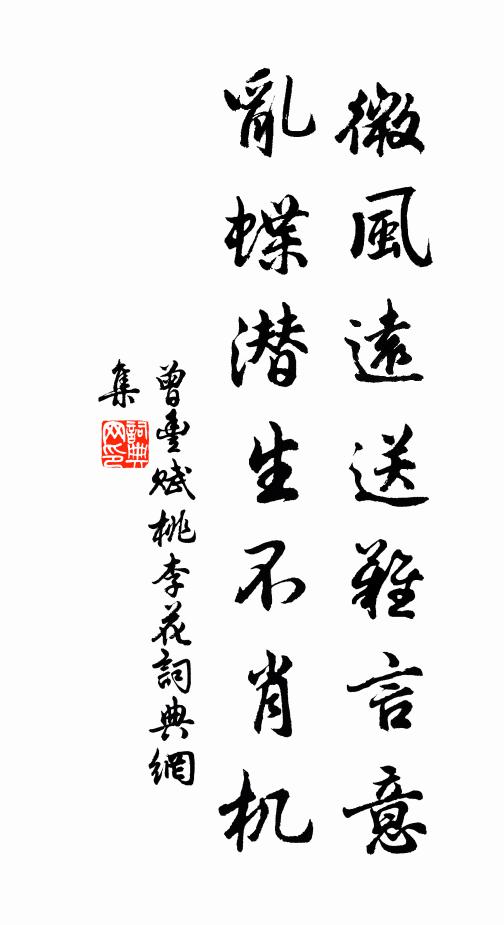 微風遠送難言意
亂蝶潜生不肖机
曾豐賦桃李花詞典網
集
詞典
网印